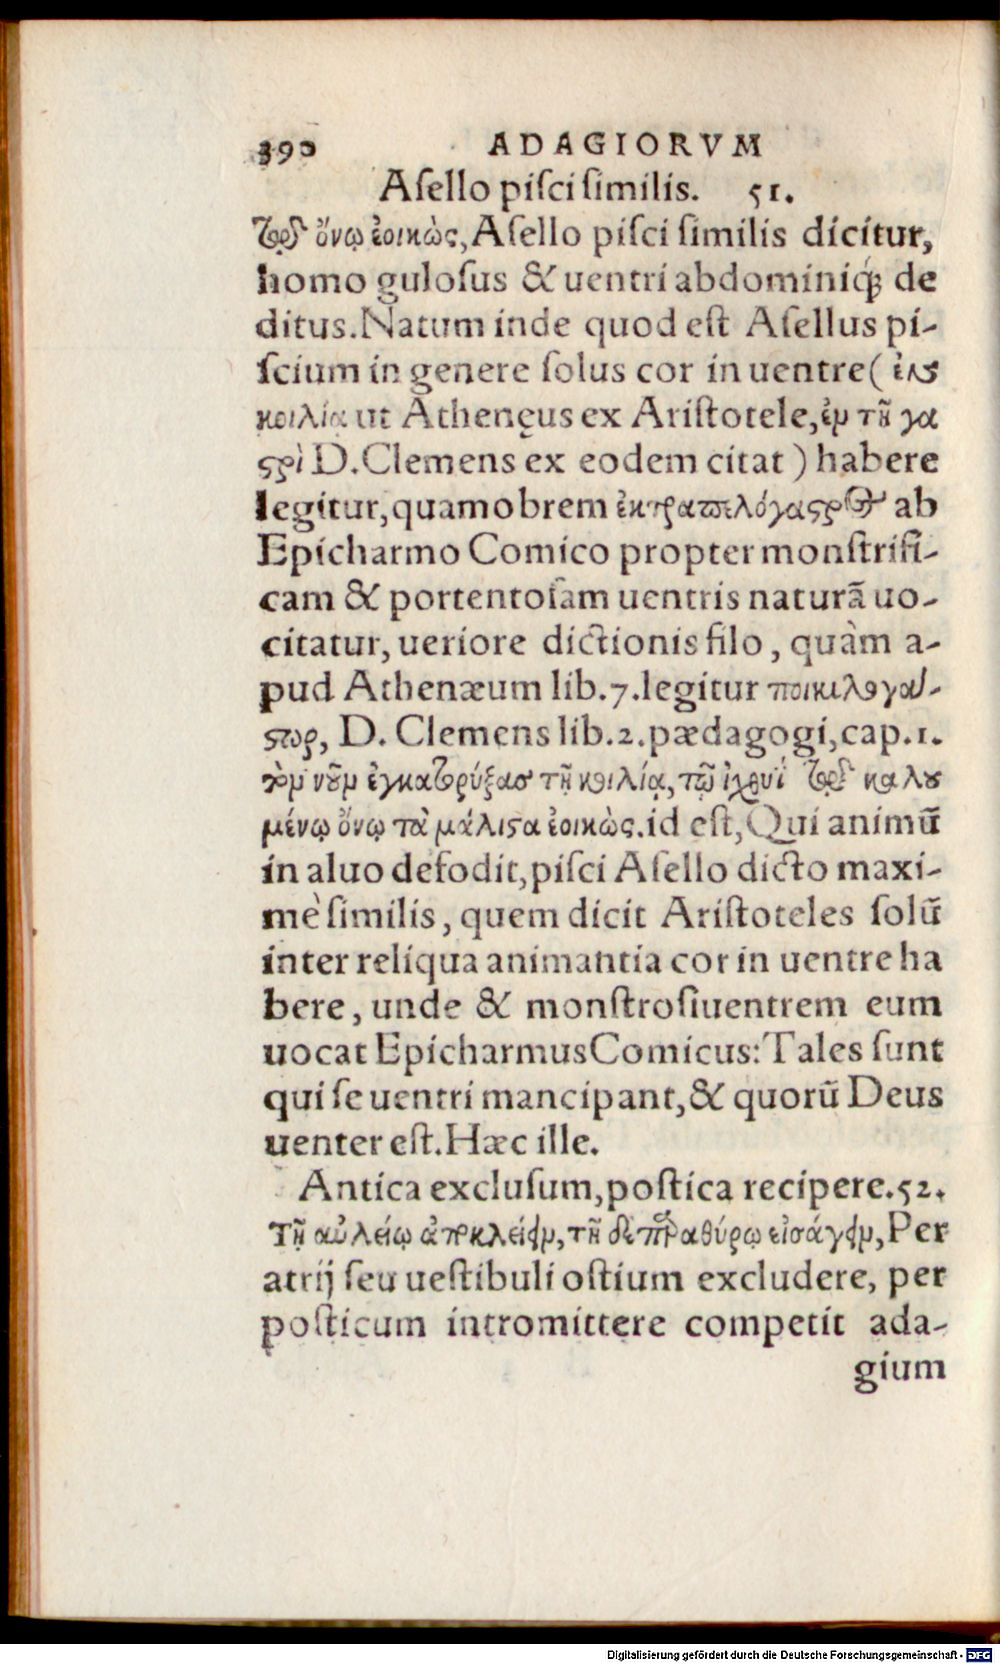 390 ADAGIORVM
Aſello piſci ſimilis. 51.
ὄνῳ ἐοικὼς, Aſello piſci ſimilis dicitur,
homo guloſus & uentri abdominiq́ꝫ de
ditus. Natum inde quod eſt Aſellus pi-
ſcium in genere ſolus cor in uentre (ἐν τῇ
κοιλίᾳ ut Athenęus ex Ariſtotele, ἐν τῇ γα
ϛρὶ D. Clemens ex eodem citat) habere
legitur, quamobrem ἐκτραπελόγαϛρος ab
Epicharmo Comico propter monſtrifi-
cam & portentoſam uentris naturā uo-
citatur, ueriore dictionis filo, quàm a-
pud Athenæum lib. 7. legitur
D. Clemens lib. 2. pædagogi, cap. 1.
τὸν νοῦν ἐγκατορύξας τῇ κοιλίᾳ, τῷ ἰχθύϊ καλου
μένῳ ὄνῳ τὰ μάλιϛα ἐοικὼς. id eſt, Qui animū
in aluo defodit, piſci Aſello dicto maxi-
mè ſimilis, quem dicit Ariſtoteles ſolū
inter reliqua animantia cor in uentre ha
bere, unde & monſtroſiuentrem eum
uocat Epicharmus Comicus: Tales ſunt
qui ſe uentri mancipant, & quorū Deus
uenter eſt. Hæc ille.
Antica exclusum, poſtica recipere. 52.
Τῇ αὐλείῳ ἀποκλείειν, τῇ δὲ παραθύρῳ εἰσάγειν, Per
atrij ſeu ueſtibuli oſtium excludere, per
poſticum intromittere competit ada-
gium
Digitalisierung gefördert durch die Deutsche Forschungsgemeinschaft - DFG